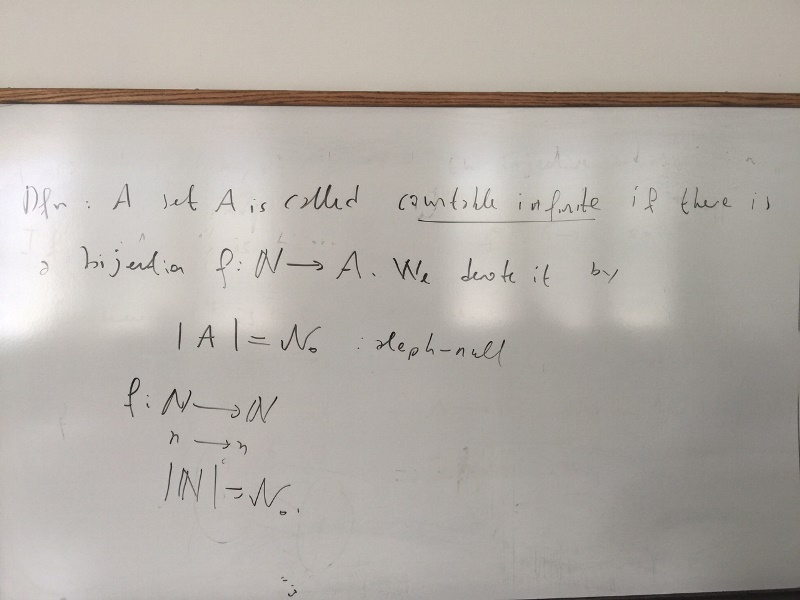 Dfn : A set A is called countable infinite if there is
a bijection f: ℕ → A. We denote it by
|A| = ℵ₀ : aleph-null
f: ℕ → ℕ
n → n
|ℕ| = ℵ₀.